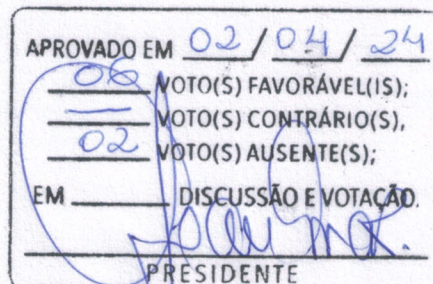 APROVADO EM 02 / 04 / 24
06 VOTO(S) FAVORÁVEL(IS);
— VOTO(S) CONTRÁRIO(S),
02 VOTO(S) AUSENTE(S);
EM ______ DISCUSSÃO E VOTAÇÃO.
PRESIDENTE